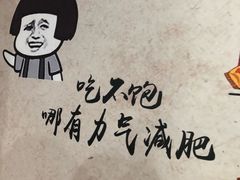 吃不饱
哪有力气减肥